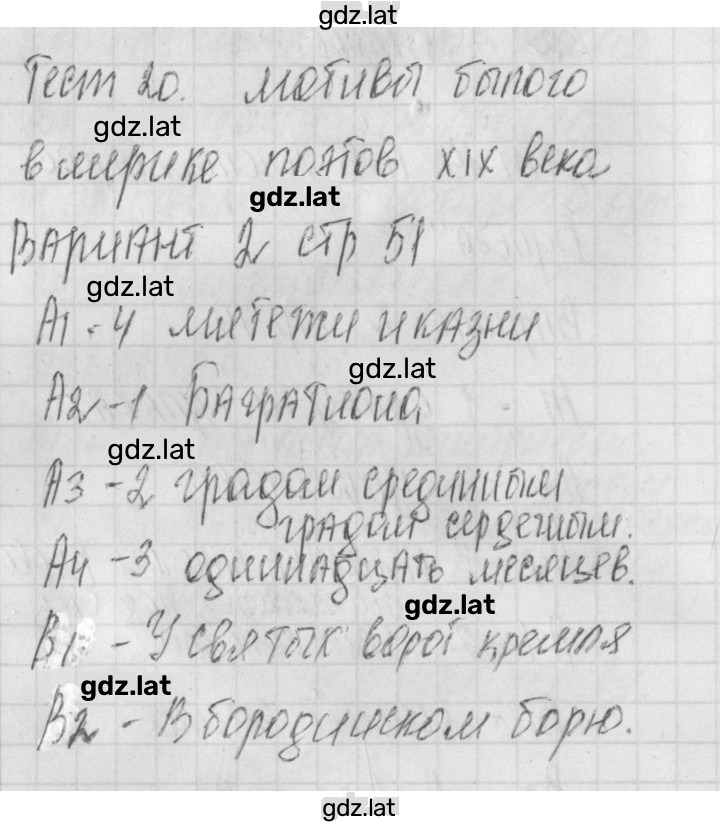 gdz.lat
Тест 20. мотивы былого
gdz.lat
в лирике поэтов XIX века
gdz.lat
Вариант 2 стр 51
gdz.lat
А1 - 4 мятежи и казни
gdz.lat
А2 - 1 Багратиона
gdz.lat
А3 - 2 градом срединным
градом сердечным.
А4 - 3 одиннадцать месяцев.
gdz.lat
В1 - У святых ворот кремля
gdz.lat
В2 - В бородинском борю.
gdz.lat